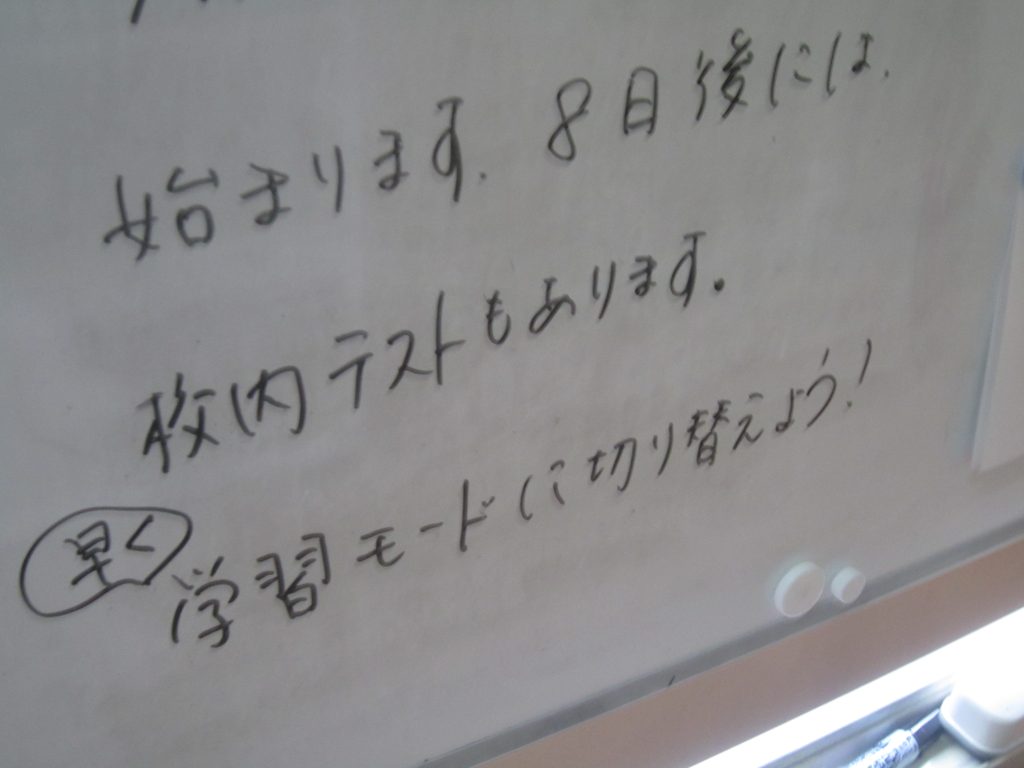 始まります. 8日後には,
校内テストもあります。
早く 学習モードに切り替えよう!